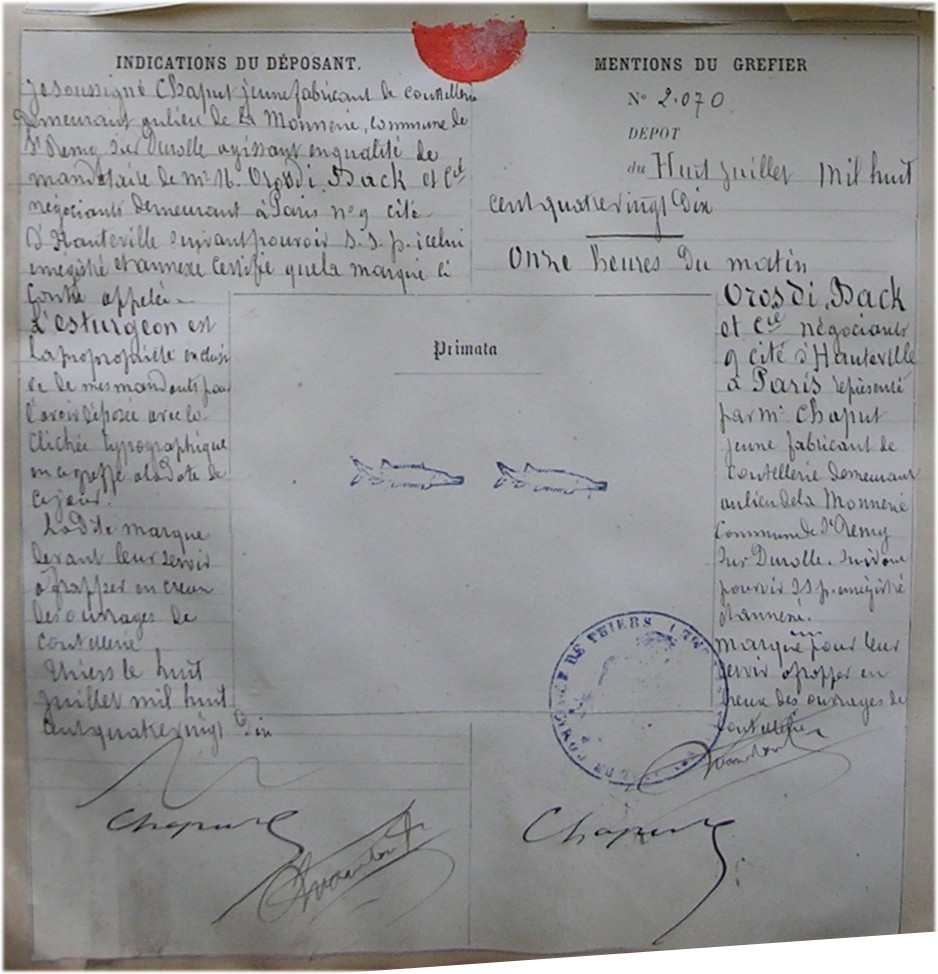 INDICATIONS DU DÉPOSANT.
Je soussigné Chaput jeune fabricant de coutellerie
Demeurant au lieu de La Monnerie, Commune de
St Remy sur Durolle agissant en qualité de
mandataire de Mr M. Orosdi, Back et Cie
négociants demeurant à Paris no 9 cité
d'Hauteville suivant pouvoir S. S. p. icelui
enregistré et annexé certifie que la marque ci
contre appelée
L'esturgeon est
la propriété exclusi
ve de mes mandants pour
l'avoir déposée avec le
clichée typographique
au greffe à la date de
ce jour.
La dite marque
devant leur servir
à frapper en creux
des ouvrages de
coutellerie
Thiers le huit
juillet mil huit
cent quatre vingt Dix
Chaput
MENTIONS DU GREFIER
No 2.070
DÉPOT
du Huit juillet Mil huit
cent quatre vingt Dix
Onze heures Du matin
Orosdi, Back
et Cie négociants
9 cité d'Hauteville
à Paris représenté
par Mr Chaput
jeune fabricant de
coutellerie demeurant
au lieu de la Monnerie
Commune de St Remy
sur Durolle. Suivant
pouvoir S S p. enregistré
et annexé.
Marque pour leur
servir à frapper en
creux des ouvrages de
coutellerie
Chaput
Primata
DE THIERS